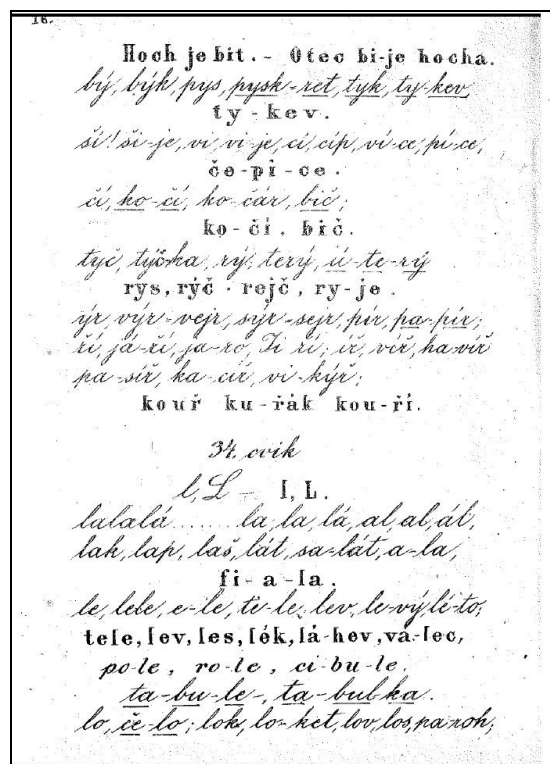 16.
Hoch je bit. - Otec bi-je hocha.
bý, býk, pys, pysk-ret, tyk, ty-kev,
ty-kev.
ší! ši-je, ví, vi-je, cí, cíp, ví-ce, pí-ce,
če-pi-ce.
čí, ko-čí, ko-čár, bič;
ko-čí. bič.
tyč, týčka, rý, terý, ú-te-rý
rys, rýč - rejč, ry-je.
ýr, výr-vejr, sýr-sejr, pír, pa-pír;
ří, já-ří, ja-ro, Ji-ří; íř, víř, ha-víř
pa-síř, ka-cíř, vi-kýř;
kouř ku-řák kou-ří.
34. cvik
l, L - l, L.
lalalá ...... la, la, lá, al, al, ál,
lak, lap, laš, lát, sa-lát, a-la,
fi-a-la.
le, lele, e-le, te-le, lev, le-vý, lé-to;
tele, lev, les, lék, lá-hev, vá-lec,
po-le, ro-le, ci-bu-le.
ta-bu-le-, ta-bulka.
lo, če-lo; lok, lo-ket, lov, los, pa-roh;